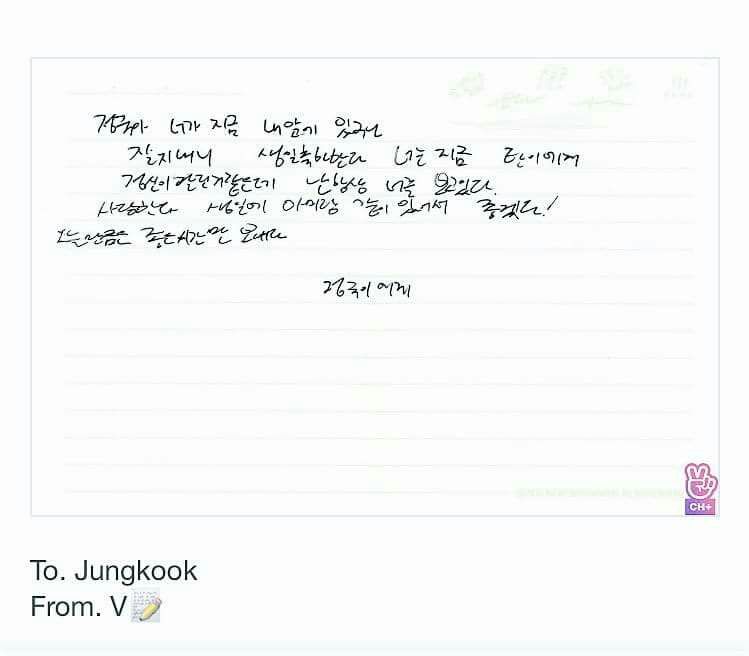 정국아 너가 지금 내앞에 있구나
잘지내니 생일축하한다 너는 지금 탄이에게
정신이 팔린거같은데 난항상 너를 보고있다.
사랑한다 생일에 아미랑 같이 있어서 좋겠다!
오늘만큼은 좋은시간만 보내라
정국이에게
CH+
To. Jungkook
From. V